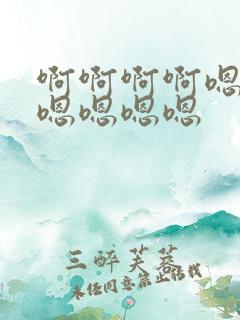 啊啊啊啊嗯
嗯嗯嗯嗯
三醉芙蓉
未经同意禁止转载